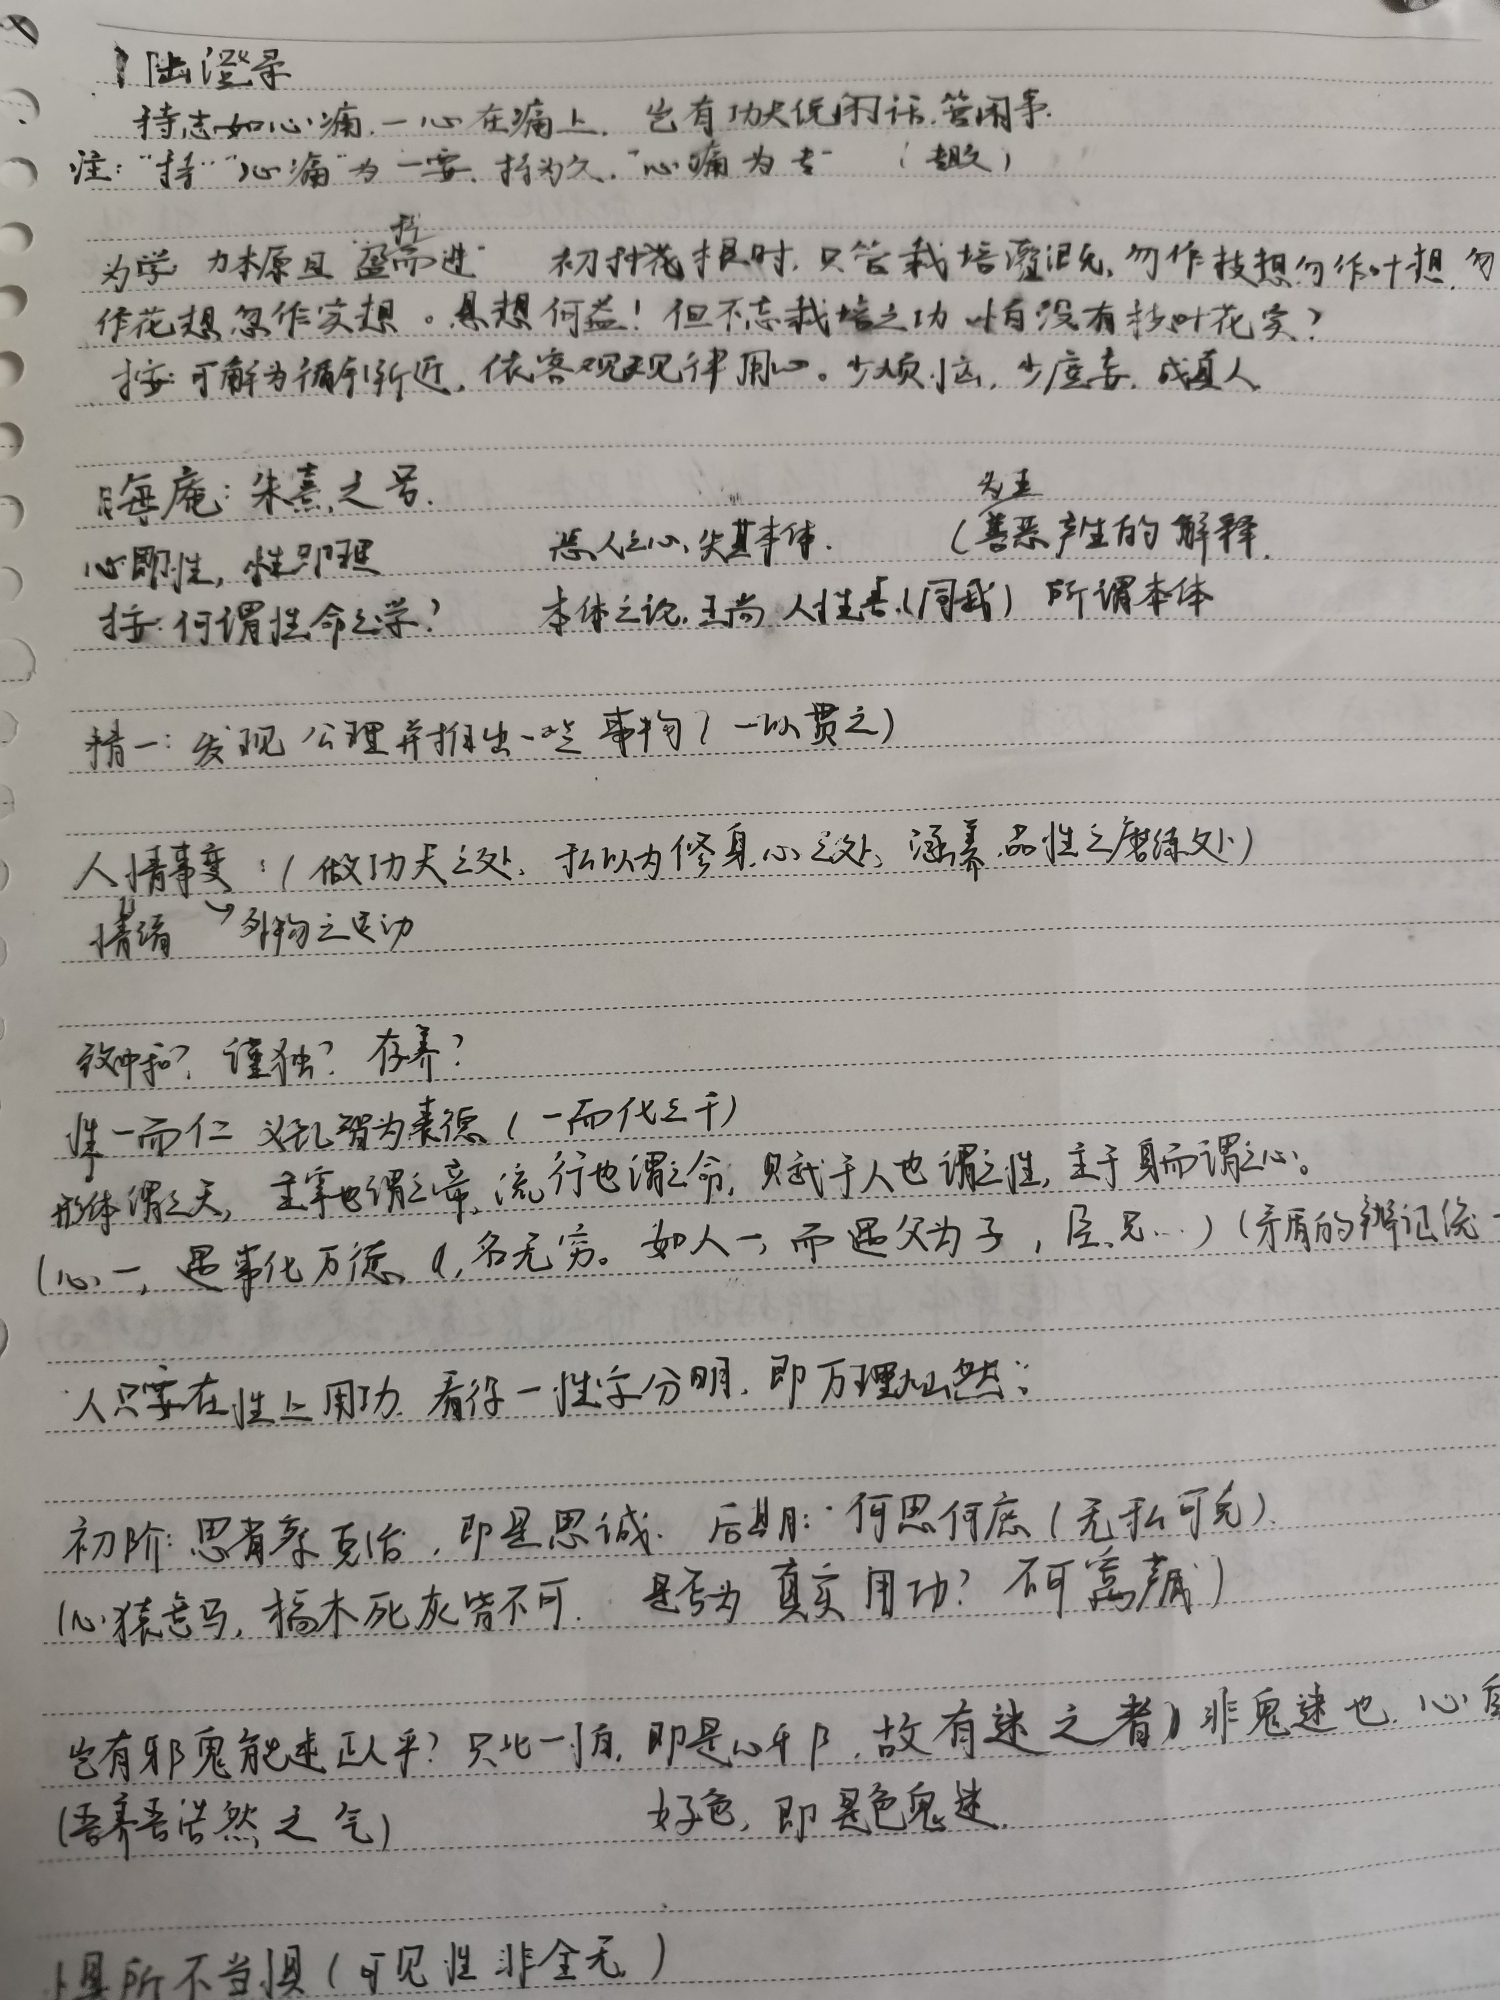 陆澄录
持志如心痛.一心在痛上.岂有功夫说闲话.管闲事.
注:“持”“心痛”为一要.持为久.“心痛为专”
为学 力本原且盈而进” 初种花根时.只管栽培灌溉.勿作枝想勿作叶想.勿
作花想忽作实想。悬想何益!但不忘栽培之功 怕没有枝叶花实?
按:可解为循引渐近,依客观观律用心。少烦恼,少虚妄.成真人
晦庵:朱熹之号.
为主
恶人之心,失其本体. (善恶产生的解释.
心即性,性即理
按:何谓性命之学? 本体之论.王尚人性善.(同我) 所谓本体
精一:发现公理并推出一些事物(一以贯之)
人情事变:(做功夫之处,私以为修身.心之处,涵养.品性之磨练处)
情绪 外物之运动
致中和?谨独?存养?
性一而仁义礼智为表德(一而化三千)
形体谓之天,主宰也谓之帝,流行也谓之命,赋于人也谓之性,主于身而谓之心。
(心一,遇事化万德,名无穷。如人一,而遇父为子,臣.兄...)(矛盾的辨证统一
人只要在性上用功.看得一性字分明.即万理灿然:
初阶:思省察克治,即是思诚. 后期:何思何虑(无私可克).
(心猿意马,槁木死灰皆不可. 是否为真实用功?
岂有邪鬼能迷正人乎?只此一怕,即是心邪,故有迷之者)非鬼迷也.心自
(吾养吾浩然之气) 好色,即是色鬼迷.
惧所不当惧(可见性非全无)